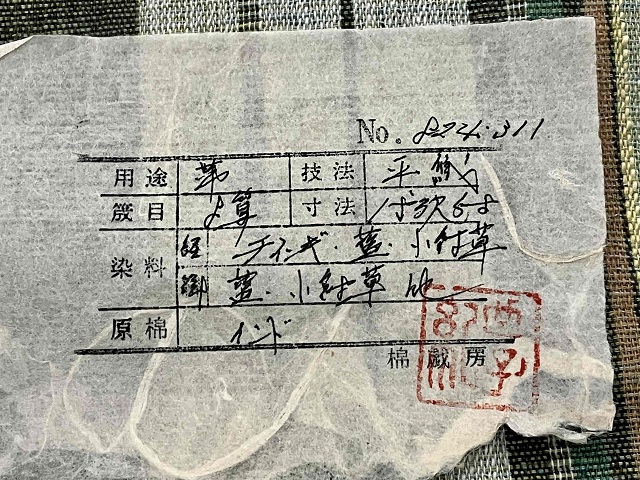 No. 824.311
用途 帯 技法 平織
筬目 よ算 寸法
染料 経 チネギ・藍・小鮒草
緯 藍・小鮒草 他
原棉 インド
棉戯房